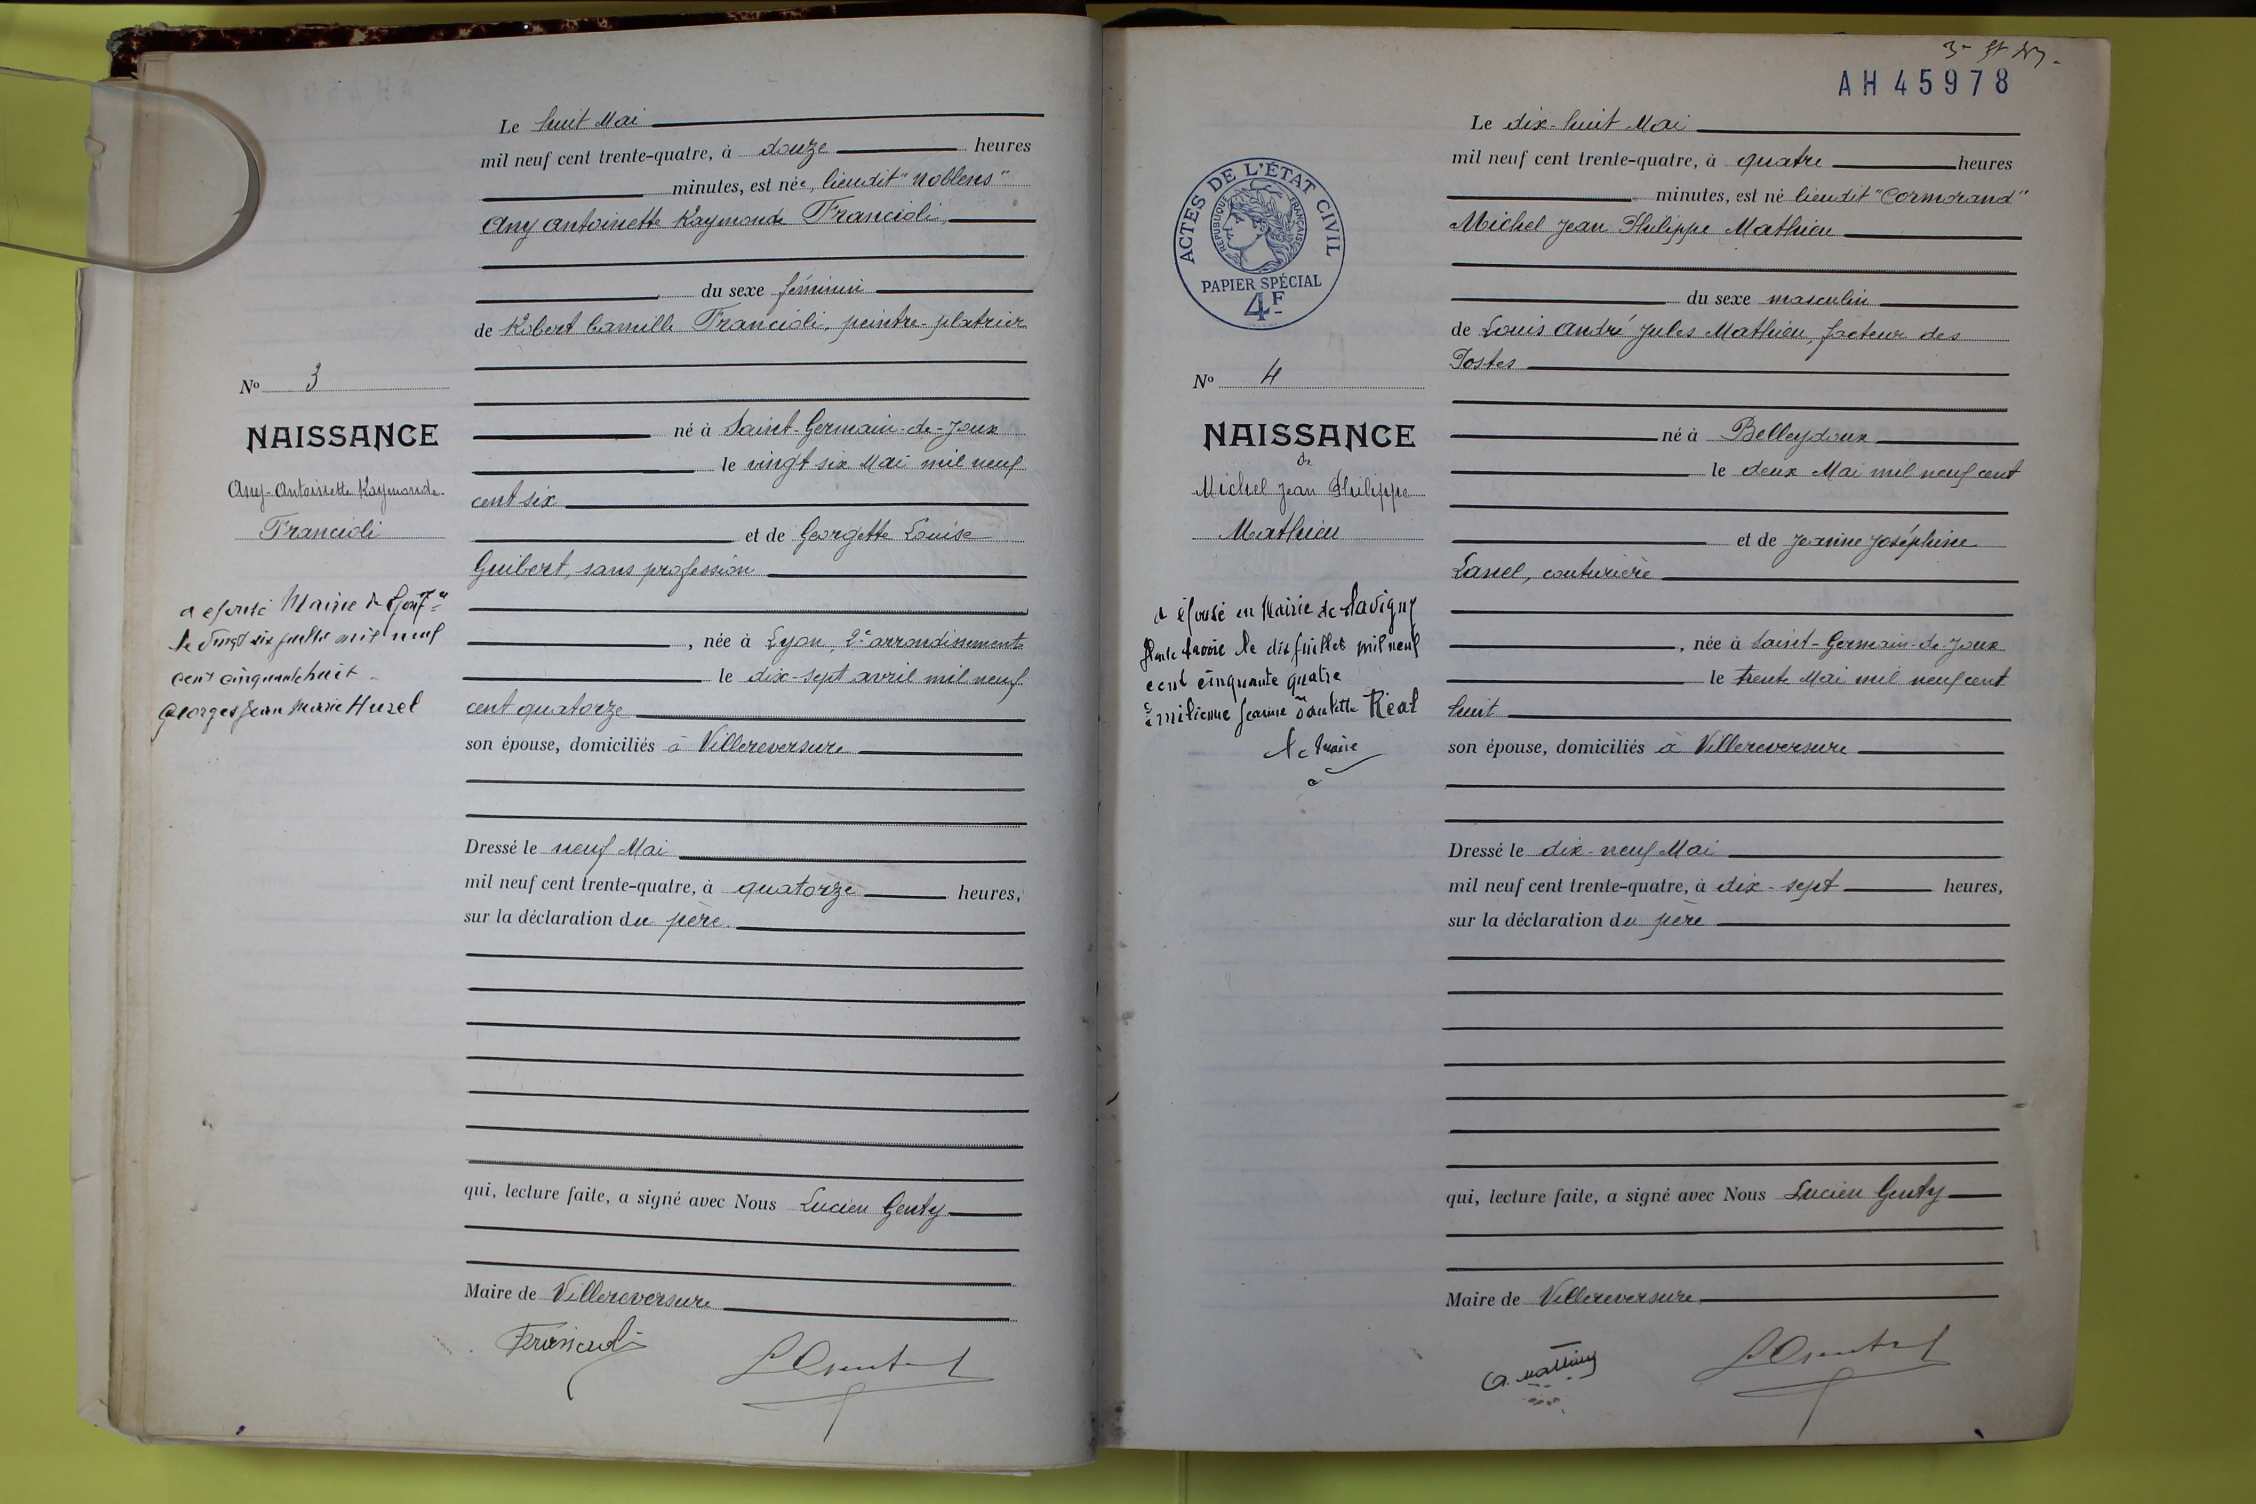 Le huit Mai
mil neuf cent trente-quatre, à douze heures
minutes, est née, lieudit "Noblens"
Any Antoinette Raymonde Francioli,
du sexe féminin
de Robert Camille Francioli, peintre-platrier
né à Saint-Germain-de-Joux
le vingt six Mai mil neuf
cent six
et de Georgette Louise
Guibert, sans profession
, née à Lyon, 2e arrondissement
le dix-sept avril mil neuf
cent quatorze
son épouse, domiciliés à Villereversure
Dressé le neuf Mai
mil neuf cent trente-quatre, à quatorze heures,
sur la déclaration du père.
qui, lecture faite, a signé avec Nous Lucien Genty
Maire de Villereversure
Francioli
No 3
NAISSANCE
Any-Antoinette Raymonde
Francioli
a épousé Mairie de
le vingt six juillet mil neuf
cent cinquante huit
Georges Jean Marie Huzel
AH 45978
Le dix-huit Mai
mil neuf cent trente-quatre, à quatre heures
minutes, est né lieudit "Cormorand"
Michel Jean Philippe Mathieu
du sexe masculin
de Louis André Jules Mathieu, facteur des
Postes
né à Belleydoux
le deux Mai mil neuf cent
et de Jeanne Joséphine
Lancel, couturière
, née à Saint-Germain-de-Joux
le trente Mai mil neuf cent
huit
son épouse, domiciliés à Villereversure
Dressé le dix-neuf Mai
mil neuf cent trente-quatre, à dix-sept heures,
sur la déclaration du père
qui, lecture faite, a signé avec Nous Lucien Genty
Maire de Villereversure
A. Mathieu
ACTES DE L'ÉTAT CIVIL
RÉPUBLIQUE FRANÇAISE
PAPIER SPÉCIAL
4F
No 4
NAISSANCE
de
Michel Jean Philippe
Mathieu
a épousé en Mairie de Savigny
Haute Savoie le dix juillet mil neuf
cent cinquante quatre
Emilienne Jeanne Réal
Le Maire